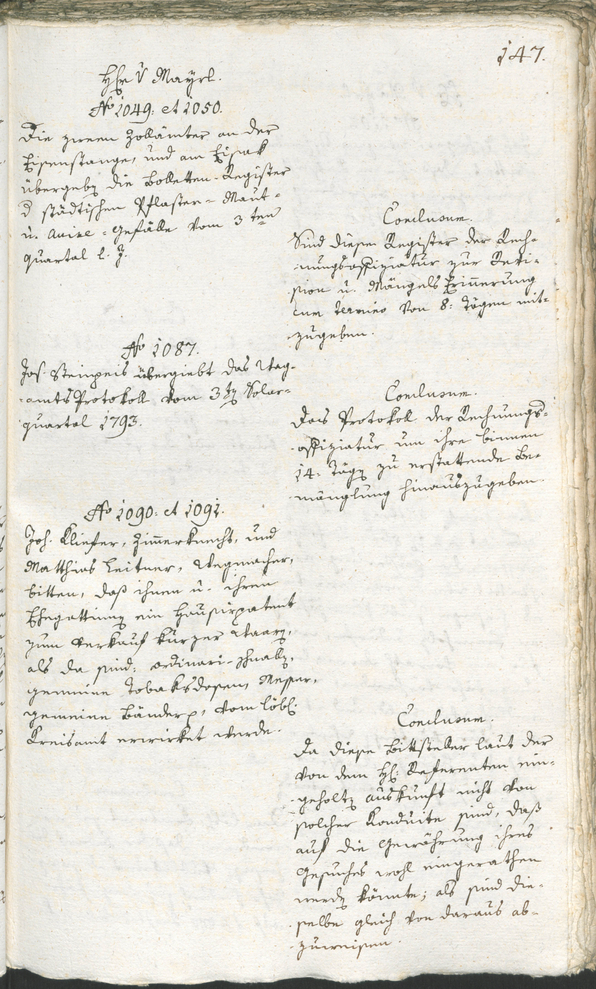 147.
Hr. v Mayrl.
No 1049: et 1050.
Die zween Zollämter an der
Eisenstange, und am Eisak
übergeben die Bolletten-Register
d städtischen Pflaster- Maut-
u. -Gefälle vom 3ten
quartal l. J.
Conclusum.
Sind diese Register der Rech-
nungsoffiziatur zur Revi-
sion u. Mängels Erinnerung
cum termino von 8: Tägen mit-
zugeben.
No 1087.
Jos. Steineis übergiebt das Wag-
amts Protokoll vom 3ten Solar-
quartal 1793.
Conclusum.
Das Protokoll der Rechnungs-
offiziatur um ihre binnen
14: Tägen zu erstattende Be-
mänglung hinauszugeben.
No 1090: et 1091.
Joh. Kliefer, Zimmerknecht, und
Matthias Leitner, Wegmacher,
bitten, daß ihnen u. ihren
Ehegattinnen ein Hausirpatent
zum Verkauf kurzer Waaren,
als da sind: ordinari-Schnallen,
gemeine Tobaksdosen, Messer,
gemeine Bänder, vom löbl.
Kreisamt erwirket werde.
Conclusum.
Da diese Bittsteller laut der
von dem H: Referenten ein-
geholten Auskunft nicht von
solcher Konduite sind, daß
auf die Gewährung ihres
Gesuches wohl eingerathen
werden könnte; als sind die-
selbe gleich von daraus ab-
zuweisen.